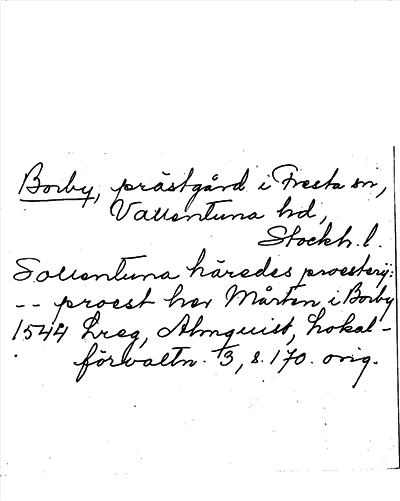 Borby, prästgård i Fresta sn,
Vallentuna hd,
Stockh. l.
Sollentuna häredes proestery:
-- proest her Mårten i Borby
1544 Lreg, Almquist, Lokal-
förvaltn. 3, s. 170. orig.